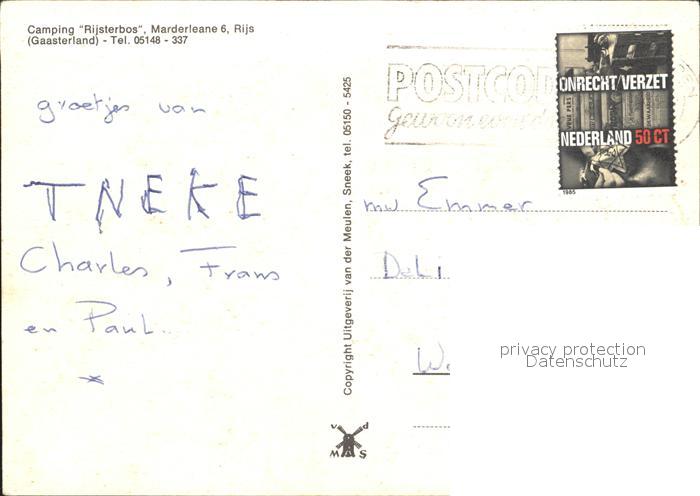 Camping "Rijsterbos", Marderleane 6, Rijs
(Gaasterland) - Tel. 05148 - 337
groetjes van
TNEKE
Charles, Frans
en Paul..
Copyright Uitgeverij van der Meulen, Sneek, tel. 05150 - 5425
vd
MAS
POSTCOD
ONRECHT/VERZET
NEDERLAND 50 CT
1985
mw Emmer
privacy protection
Datenschutz